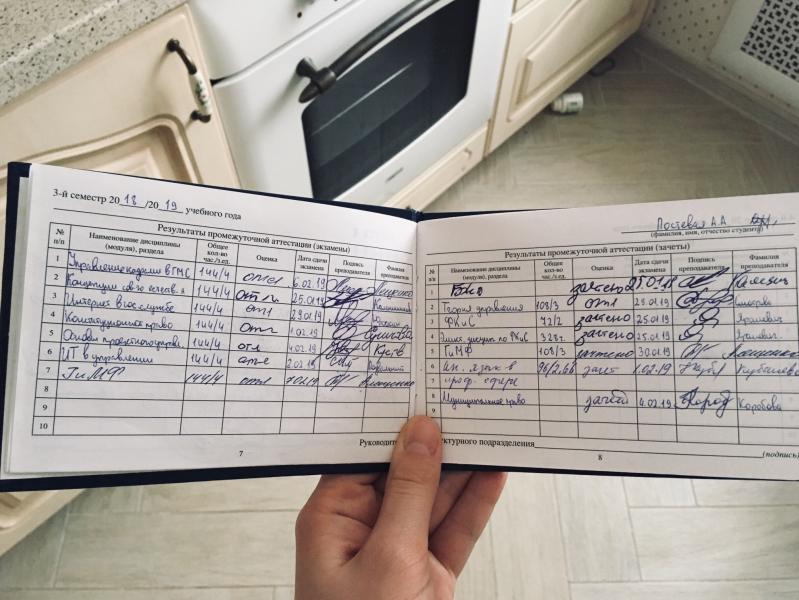 3-й семестр 2018/2019 учебного года
Результаты промежуточной аттестации (экзамены)
№ п/п Наименование дисциплины (модуля), раздела Общее кол-во час./з.ед. Оценка Дата сдачи экзамена Подпись преподавателя Фамилия преподавателя
1 Управление кадрами в ГМС 144/4 отл 6.02.19
2 Концепции совр. естеств. 144/4 отл. 25.01.19
3 Интернет в гос. службе 144/4 отл 29.01.19
4 Конституционное право 144/4 отл 1.02.19
5 Основы 144/4 отл
6 ИТ в управлении 144/4 отл 2.02.19
7 ГиМФ 144/4 отл 7.02.19 Клещенко
8
9
10
Руководи
7
Постевая А.А.
(фамилия, имя, отчество студента)
Результаты промежуточной аттестации (зачеты)
№ п/п Наименование дисциплины (модуля), раздела Общее кол-во час./з.ед. Оценка Дата сдачи зачета Подпись преподавателя Фамилия преподавателя
1 БЖД зачтено 25.01.19
2 Теория управления 108/3 отл 29.01.19
3 ФКиС 72/2 зачтено 25.01.19
4 Элект. дисципл. по ФКиС 328ч. зачтено 25.01.19
5 ГиМФ 108/3 зачтено 30.01.19 Клещенко
6 Ин. язык в 96/2,66 зачет 1.02.19 Кубышева
7 проф. сфере
8 Муниципальное право зачет 4.02.19 Коробова
9
ктурного подразделения
(подпись)
8